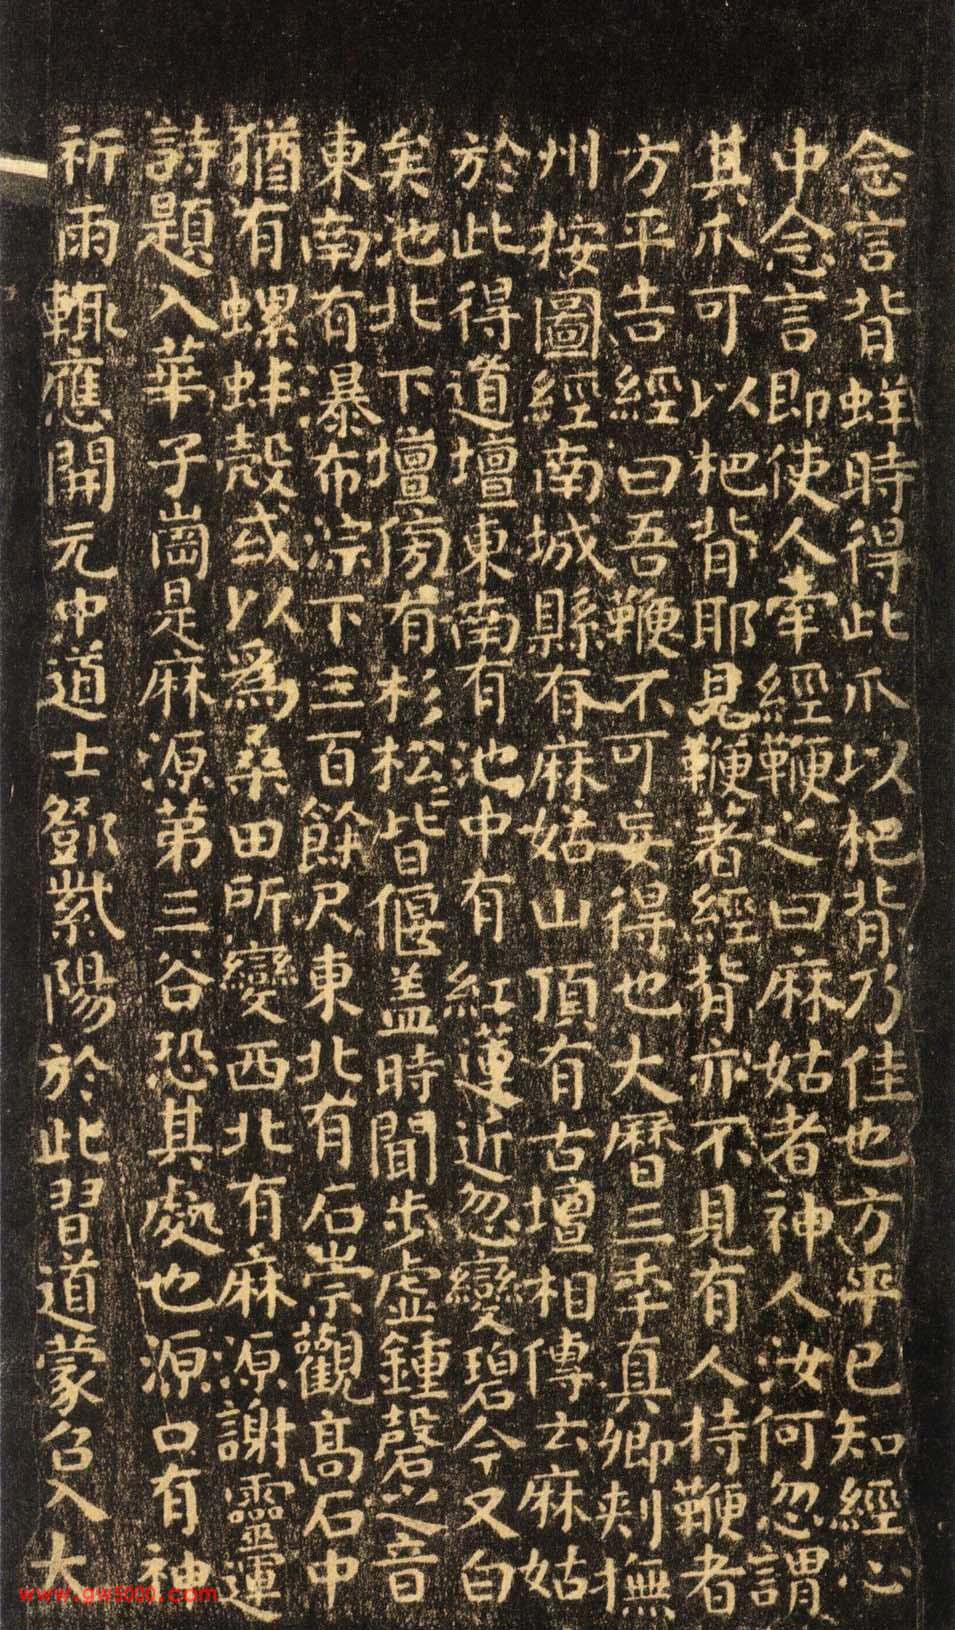 念言背蛘時得此爪以杷背乃佳也方平已知經心
中念言即使人牽經鞭之曰麻姑者神人汝何忽謂
其爪可以杷背耶見鞭著經背亦不見有人持鞭者
方平告經曰吾鞭不可妄得也大曆三年真卿刾撫
州按圖經南城縣有麻姑山頂有古壇相傳云麻姑
於此得道壇東南有池中有紅蓮近忽變碧今又白
矣池北下壇傍有杉松松皆偃盖時聞步虛鍾磬之音
東南有瀑布淙下三百餘尺東北有石崇觀高石中
猶有螺蚌殼或以為桑田所變西北有麻源謝靈運
詩題入華子崗是麻源第三谷恐其處也源口有神
祈雨輒應開元中道士鄧紫陽於此習道蒙召入大
www.gw5000.com